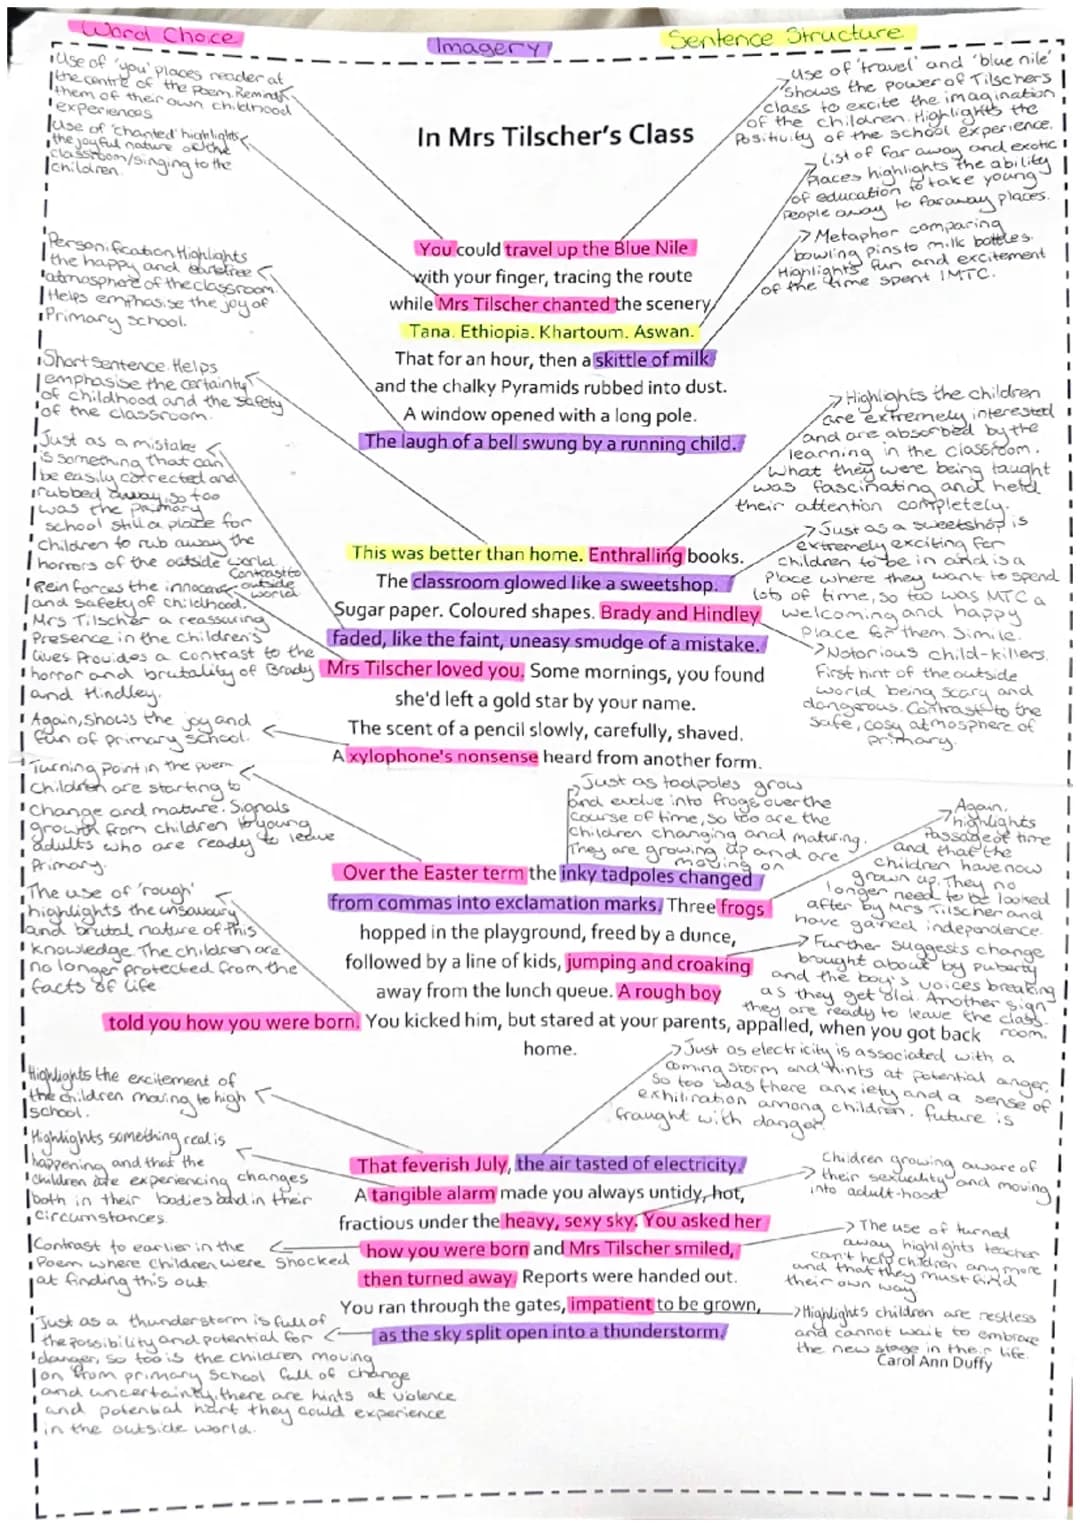 Word Choice
Imagery
Sentence Structure
Use of 'you' places reader at
the centre of the poem. Reminds
them of their own childhood
experiences
Use of 'chanted' highlights
the joyful nature of the
classroom/singing to the
children.
Use of 'travel' and 'blue nile'
shows the power of Tilschers
class to excite the imagination
of the children. Highlights the
Positivity of the school experience.
List of far away and exotic
Places highlights the ability
of education to take young
People away to faraway places.
Metaphor comparing
bowling pins to milk bottles.
Highlights fun and excitement
of the time spent IMTC.
In Mrs Tilscher's Class
You could travel up the Blue Nile
with your finger, tracing the route
while Mrs Tilscher chanted the scenery
Tana. Ethiopia. Khartoum. Aswan.
That for an hour, then a skittle of milk
and the chalky Pyramids rubbed into dust.
A window opened with a long pole.
The laugh of a bell swung by a running child.
Personification Highlights
the happy and carefree
atmosphere of the classroom.
Helps emphasise the joy of
Primary school.
Short sentence. Helps
emphasise the certainty
of childhood and the safety
of the classroom.
Just as a mistake
is something that can
be easily corrected and
rubbed away, so too
was the primary
school still a place for
children to rub away the
horrors of the outside world.
Contrast to
outside
world
Reinforces the innocence
and safety of childhood.
Mrs Tilscher a reassuring
Presence in the children's
lives Provides a contrast to the
horror and brutality of Brady
and Hindley.
Again, shows the joy and
fun of primary school.
Highlights the children
are extremely interested
and are absorbed by the
learning in the classroom.
What they were being taught
was fascinating and held
their attention completely.
Just as a sweetshop is
extremely exciting for
children to be in and is a
Place where they want to spend
lots of time, so too was MTC a
welcoming and happy
Place for them. Simile.
Notorious child-killers.
First hint of the outside
world being scary and
dangerous. Contrast to the
safe, cosy atmosphere of
primary.
This was better than home. Enthralling books.
The classroom glowed like a sweetshop.
Sugar paper. Coloured shapes. Brady and Hindley
faded, like the faint, uneasy smudge of a mistake.
Mrs Tilscher loved you. Some mornings, you found
she'd left a gold star by your name.
The scent of a pencil slowly, carefully, shaved.
A xylophone's nonsense heard from another form.
Turning Point in the poem
Children are starting to
change and mature. Signals
growth from children to young
adults who are ready to leave
Primary.
The use of 'rough'
highlights the unsavoury
and brutal nature of this
knowledge. The children are
no longer protected from the
facts of life
Just as tadpoles grow
and evolve into frogs over the
course of time, so too are the
Children changing and maturing.
They are growing up and are
moving on
Again,
highlights
Passage of time
and that the
children have now
grown up. They no
longer need to be looked
after by Mrs Tilscher and
have gained independence.
Further suggests change
brought about by puberty
and the boy's voices breaking
as they get old. Another sign
they are ready to leave the class
room.
Over the Easter term the inky tadpoles changed
from commas into exclamation marks. Three frogs
hopped in the playground, freed by a dunce,
followed by a line of kids, jumping and croaking
away from the lunch queue. A rough boy
told you how you were born. You kicked him, but stared at your parents, appalled, when you got back
home.
Highlights the excitement of
the children moving to high
school.
Highlights something real is
happening and that the
children are experiencing changes
both in their bodies and in their
circumstances.
Contrast to earlier in the
Poem where children were shocked
at finding this out
Just as a thunderstorm is full of
the possibility and potential for
danger, so too is the children moving
on from primary school full of change
and uncertainty, there are hints at violence
and potential hurt they could experience
in the outside world.
Just as electricity is associated with a
coming storm and hints at potential anger,
so too was there anxiety and a sense of
exhiliration among children. future is
fraught with danger.
Children growing aware of
their sexuality and moving
into adult-hood
The use of turned
away highlights teacher
can't help children any more
and that they must find
their own way
Highlights children are restless
and cannot wait to embrace
the new stage in their life.
That feverish July, the air tasted of electricity.
A tangible alarm made you always untidy, hot,
fractious under the heavy, sexy sky. You asked her
how you were born and Mrs Tilscher smiled,
then turned away. Reports were handed out.
You ran through the gates, impatient to be grown,
as the sky split open into a thunderstorm.
Carol Ann Duffy